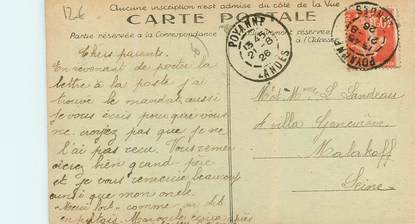 12€
Aucune inscription n'est admise du côté de la Vue
CARTE POSTALE
Partie réservée à la Correspondance
à l'Adresse
POYANNE
13-15
21-8
26
LANDES
POYANNE
LANDES
Chers parents.
En revenant de porter la
lettre à la poste j'ai
trouvé le mandat, aussi
je vous écris pour que vous
ne croyez pas que je ne
l'ai pas reçu. Vous remer
cierez bien grand-père
et je vous remercie beaucoup
ainsi que mon oncle
comme on dit
en patois.
Mr et Mme L. Landeau
villa Geneviève
Malakoff
Seine